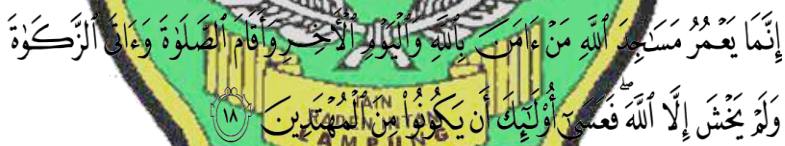 إِنَّمَا يَعْمُرُ مَسَٰجِدَ ٱللَّهِ مَنْ ءَامَنَ بِٱللَّهِ وَٱلْيَوْمِ ٱلْأَخِرِ وَأَقَامَ ٱلصَّلَوٰةَ وَءَاتَى ٱلزَّكَوٰةَ
وَلَمْ يَخْشَ إِلَّا ٱللَّهَ ۖ فَعَسَىٰٓ أُو۟لَٰٓئِكَ أَن يَكُونُوا۟ مِنَ ٱلْمُهْتَدِينَ ١٨
LAMPUNG